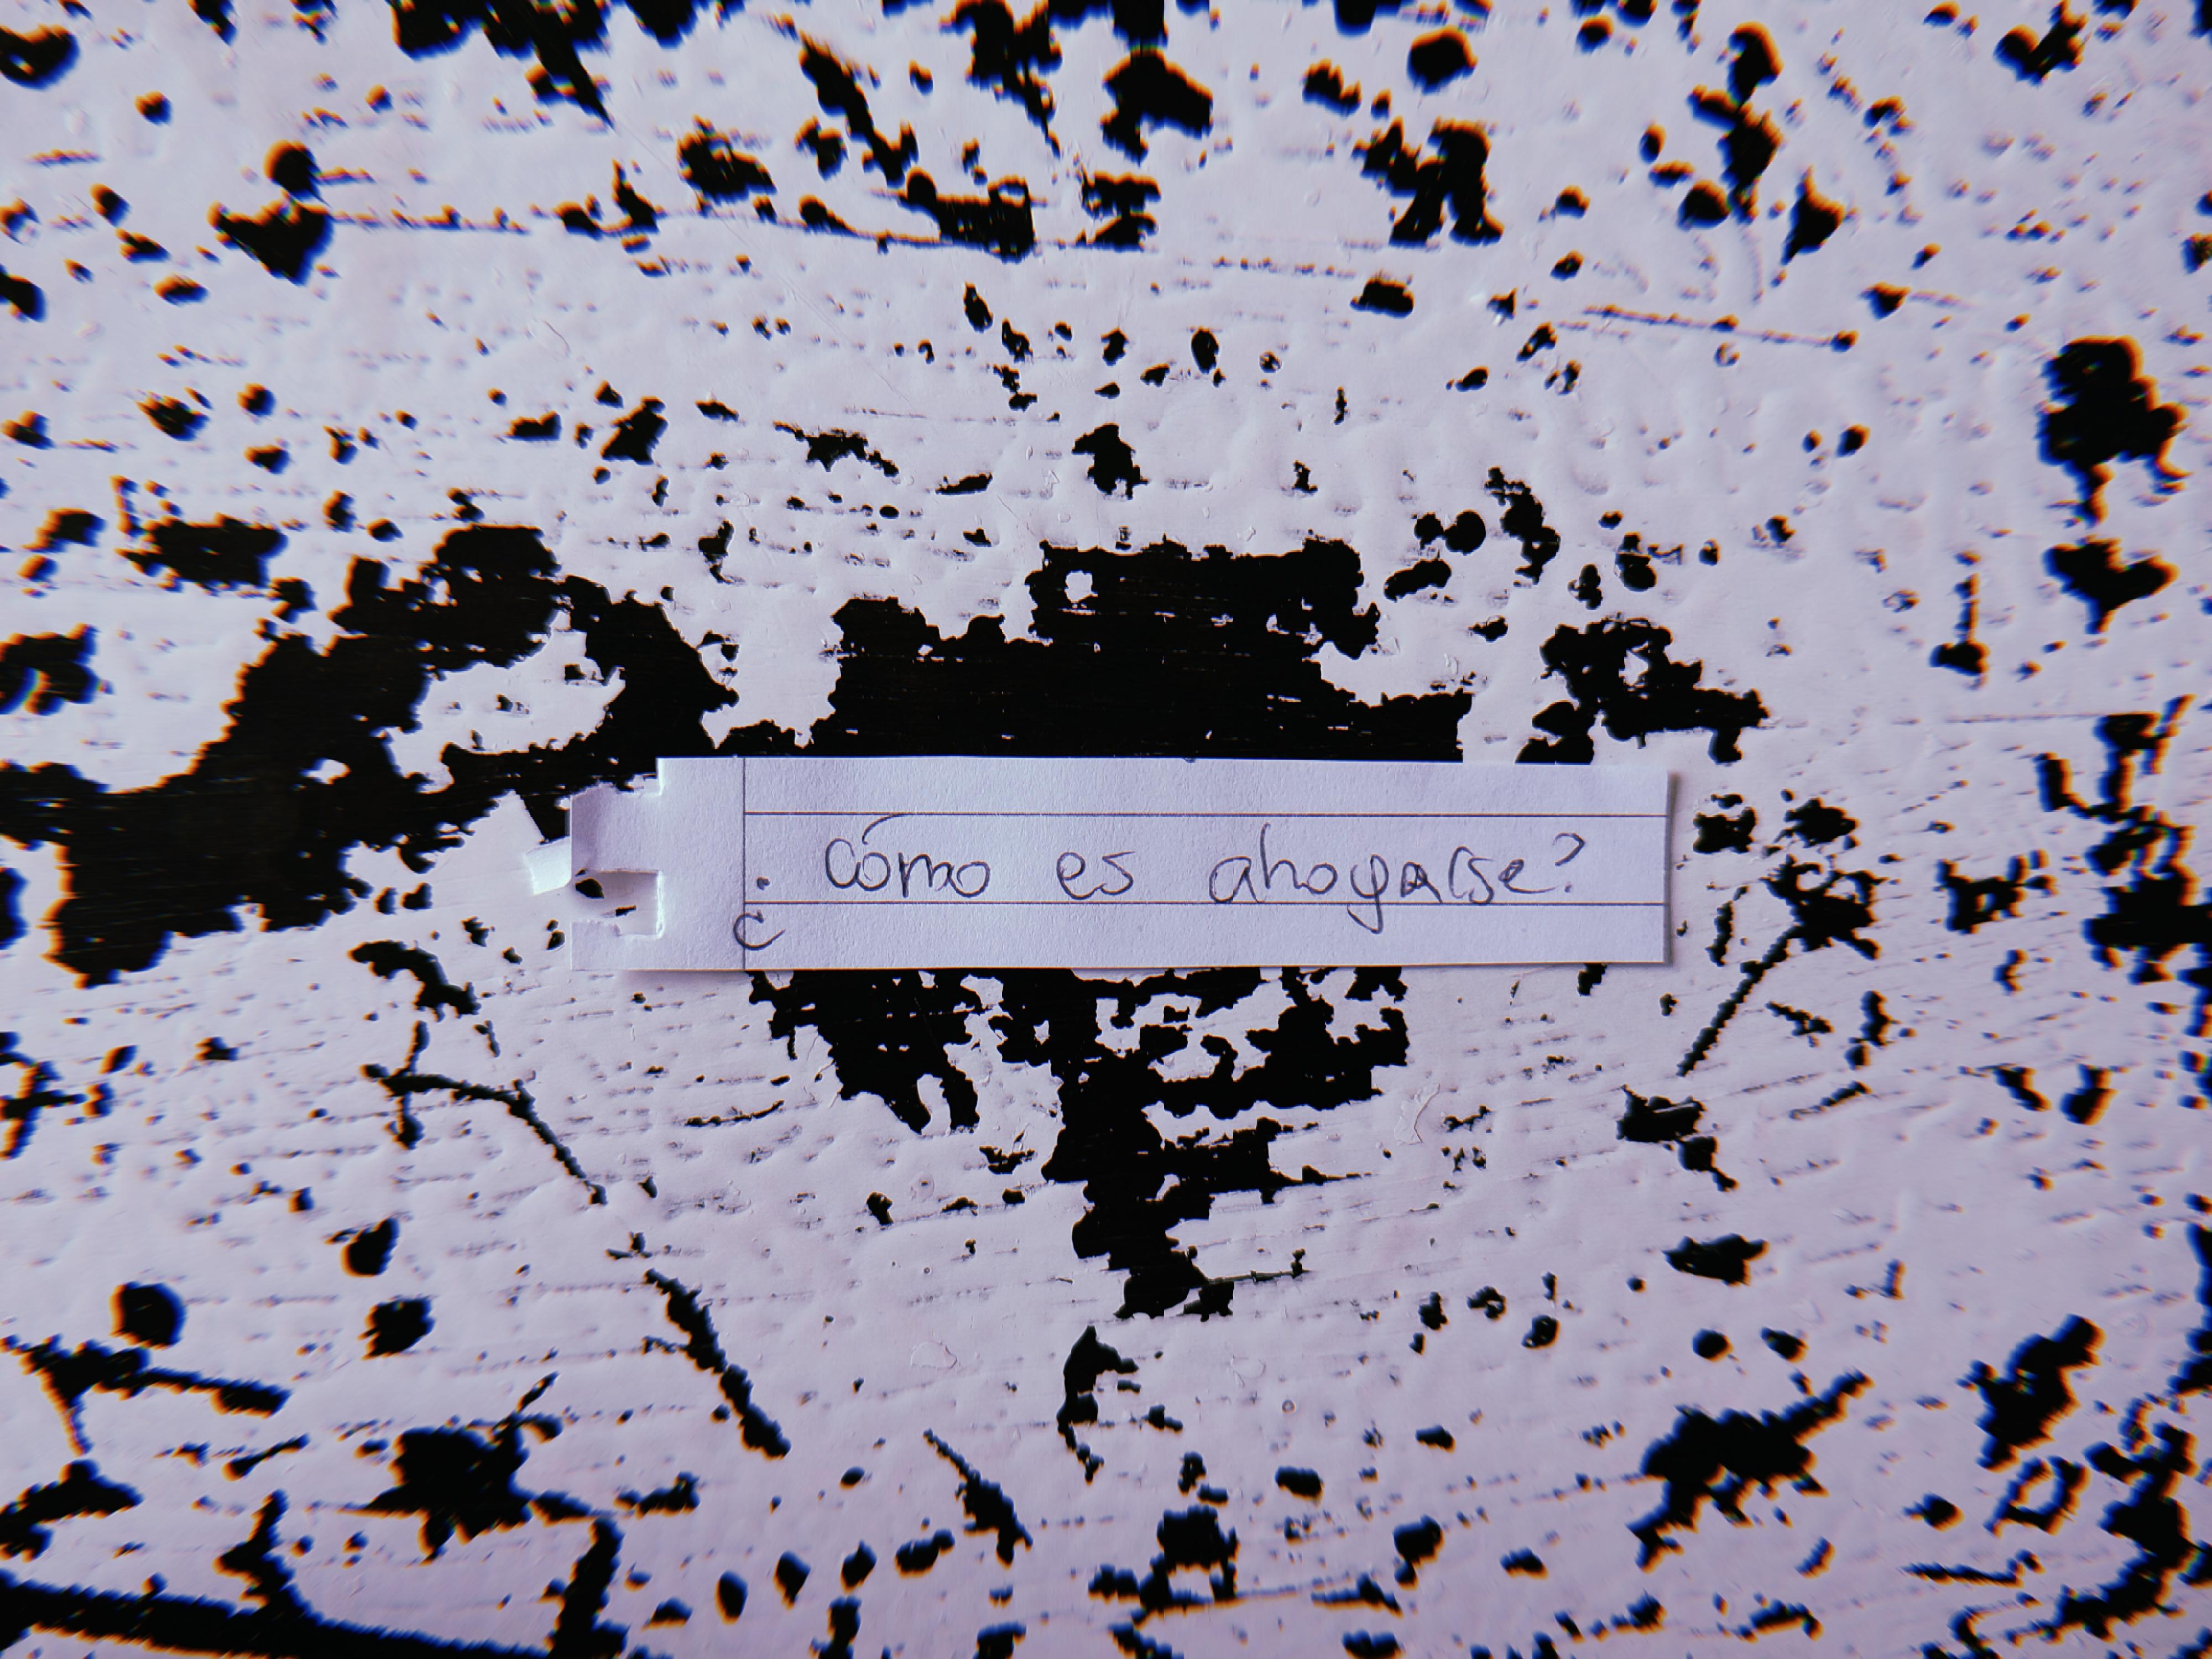 ¿cómo es ahogarse?